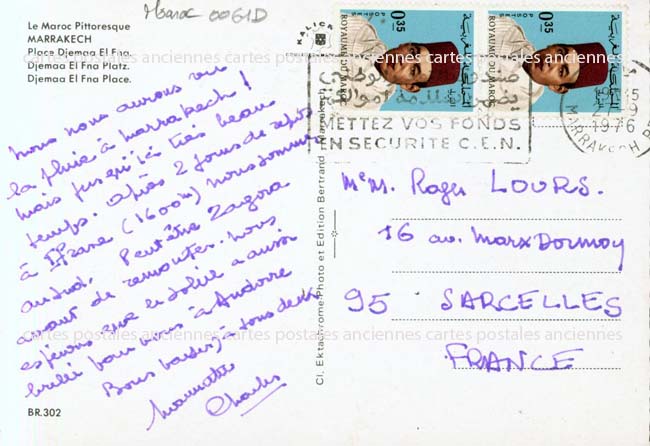 Maroc 0061D
Le Maroc Pittoresque
MARRAKECH
Place Djemaa El Fna.
Djemaa El Fna Platz.
Djemaa El Fna Place.
nous nous aurons vu
la pluie à Marrakech !
mais jusqu'ici très beau
temps. Après 2 jours de repos
à Ifrane (1600m) nous sommes
au sud. Peut être Zagora
avant de remonter. nous
espérons que le soleil a aussi
brillé pour vous à Andorre
Bons baisers, tous deux
Charles
BR.302
Cl. Ektachrome-Photo et Edition Bertrand - Marrakech
0.35
POSTES
ROYAUME DU MAROC
المملكة المغربية
البريد
0.35
POSTES
ROYAUME DU MAROC
المملكة المغربية
البريد
METTEZ VOS FONDS
EN SECURITE C.E.N.
1976
MARRAKECH
M. Roger LOURS.
16 av. Marx Dormoy
95 SARCELLES
FRANCE
cartes postales anciennes cartes postales anciennes cartes postales anciennes
cartes postales anciennes cartes postales anciennes cartes postales anciennes